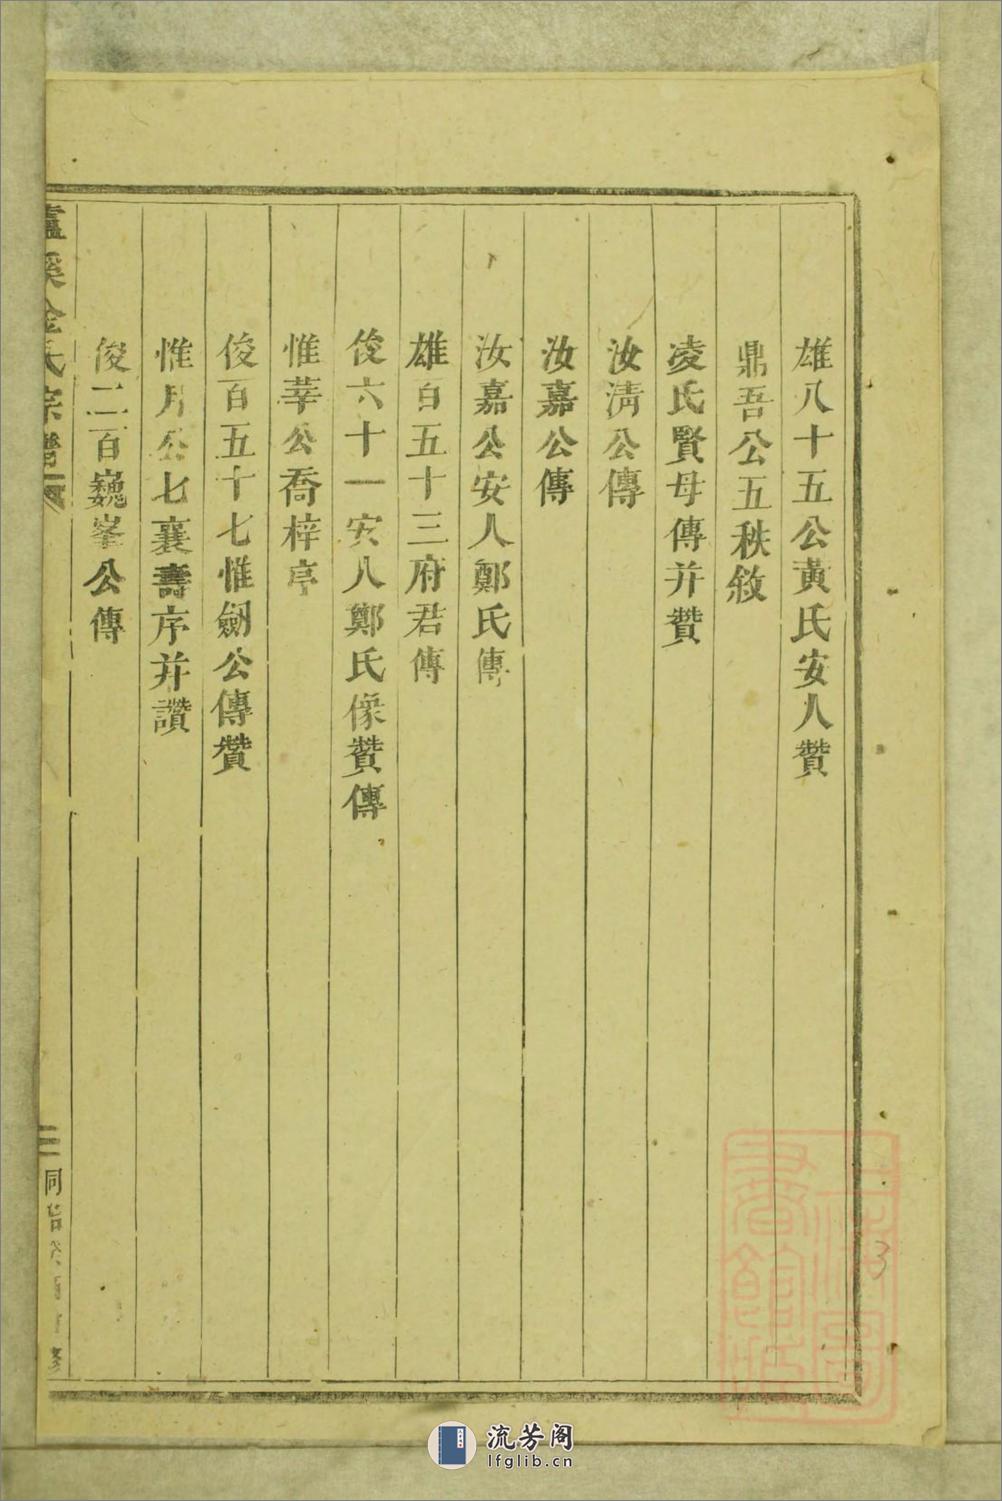 雄八十五公黃氏安人贊
鼎吾公五秩敘
凌氏賢母傳并贊
汝淸公傳
汝嘉公傳
汝嘉公安人鄭氏傳
雄百五十三府君傳
俊六十一安人鄭氏像贊傳
惟莘公喬梓亭
俊百五十七惟劒公傳贊
惟月公七襄壽序并讚
俊二百巍峯公傳
溪金氏宗譜
同治癸酉 修
上海圖
書館藏
3
流芳阁
lfglib.cn